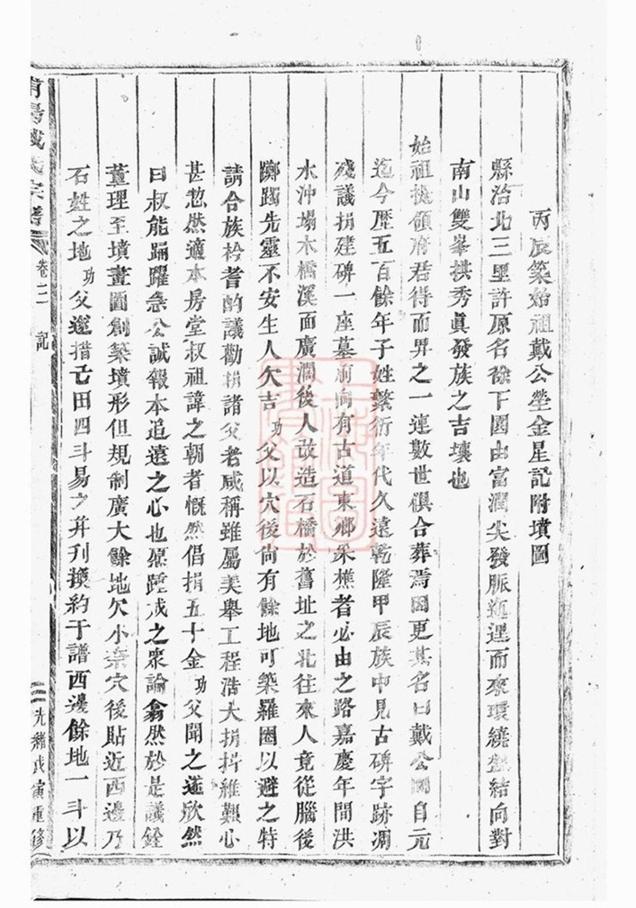 丙辰築始祖戴公塋金星記附墳圖
縣治北三里許原名徐下園由富潤尖發脈迤逶而來環繞盤結向對
南山雙峯拱秀眞發族之吉壤也
始祖 領府君得而葬之一連數世俱合葬焉因更其名曰戴公園自元
迄今歷五百餘年子姓繁衍年代久遠乾隆甲辰族中見古碑字跡凋
殘議捐建碑一座墓前向有古道東鄉采樵者必由之路嘉慶年間洪
水沖塲木橋溪面廣濶後人改造石橋於舊址之北往來人竟從腦後
躑躅先靈不安生人欠吉功父以穴後尙有餘地可築羅圈以避之特
請合族衿耆酌議勸捐諸父老咸稱雖屬美舉工程浩大捐抖維艱心
甚愁然適本房堂叔祖諱之朝者慨然倡捐五十金功父聞之遂欣然
曰叔能踊躍急公誠報本追遠之心也愿踵成之衆論翕然於是議銓
董理至墳畫圖創築墳形但規制廣大餘地欠小奈穴後貼近西邊乃
石姓之地功父遂措己田四斗易之幷刋換約于譜西邊餘地一斗以
戴氏宗譜
卷二
記
二
光緒戊寅重修